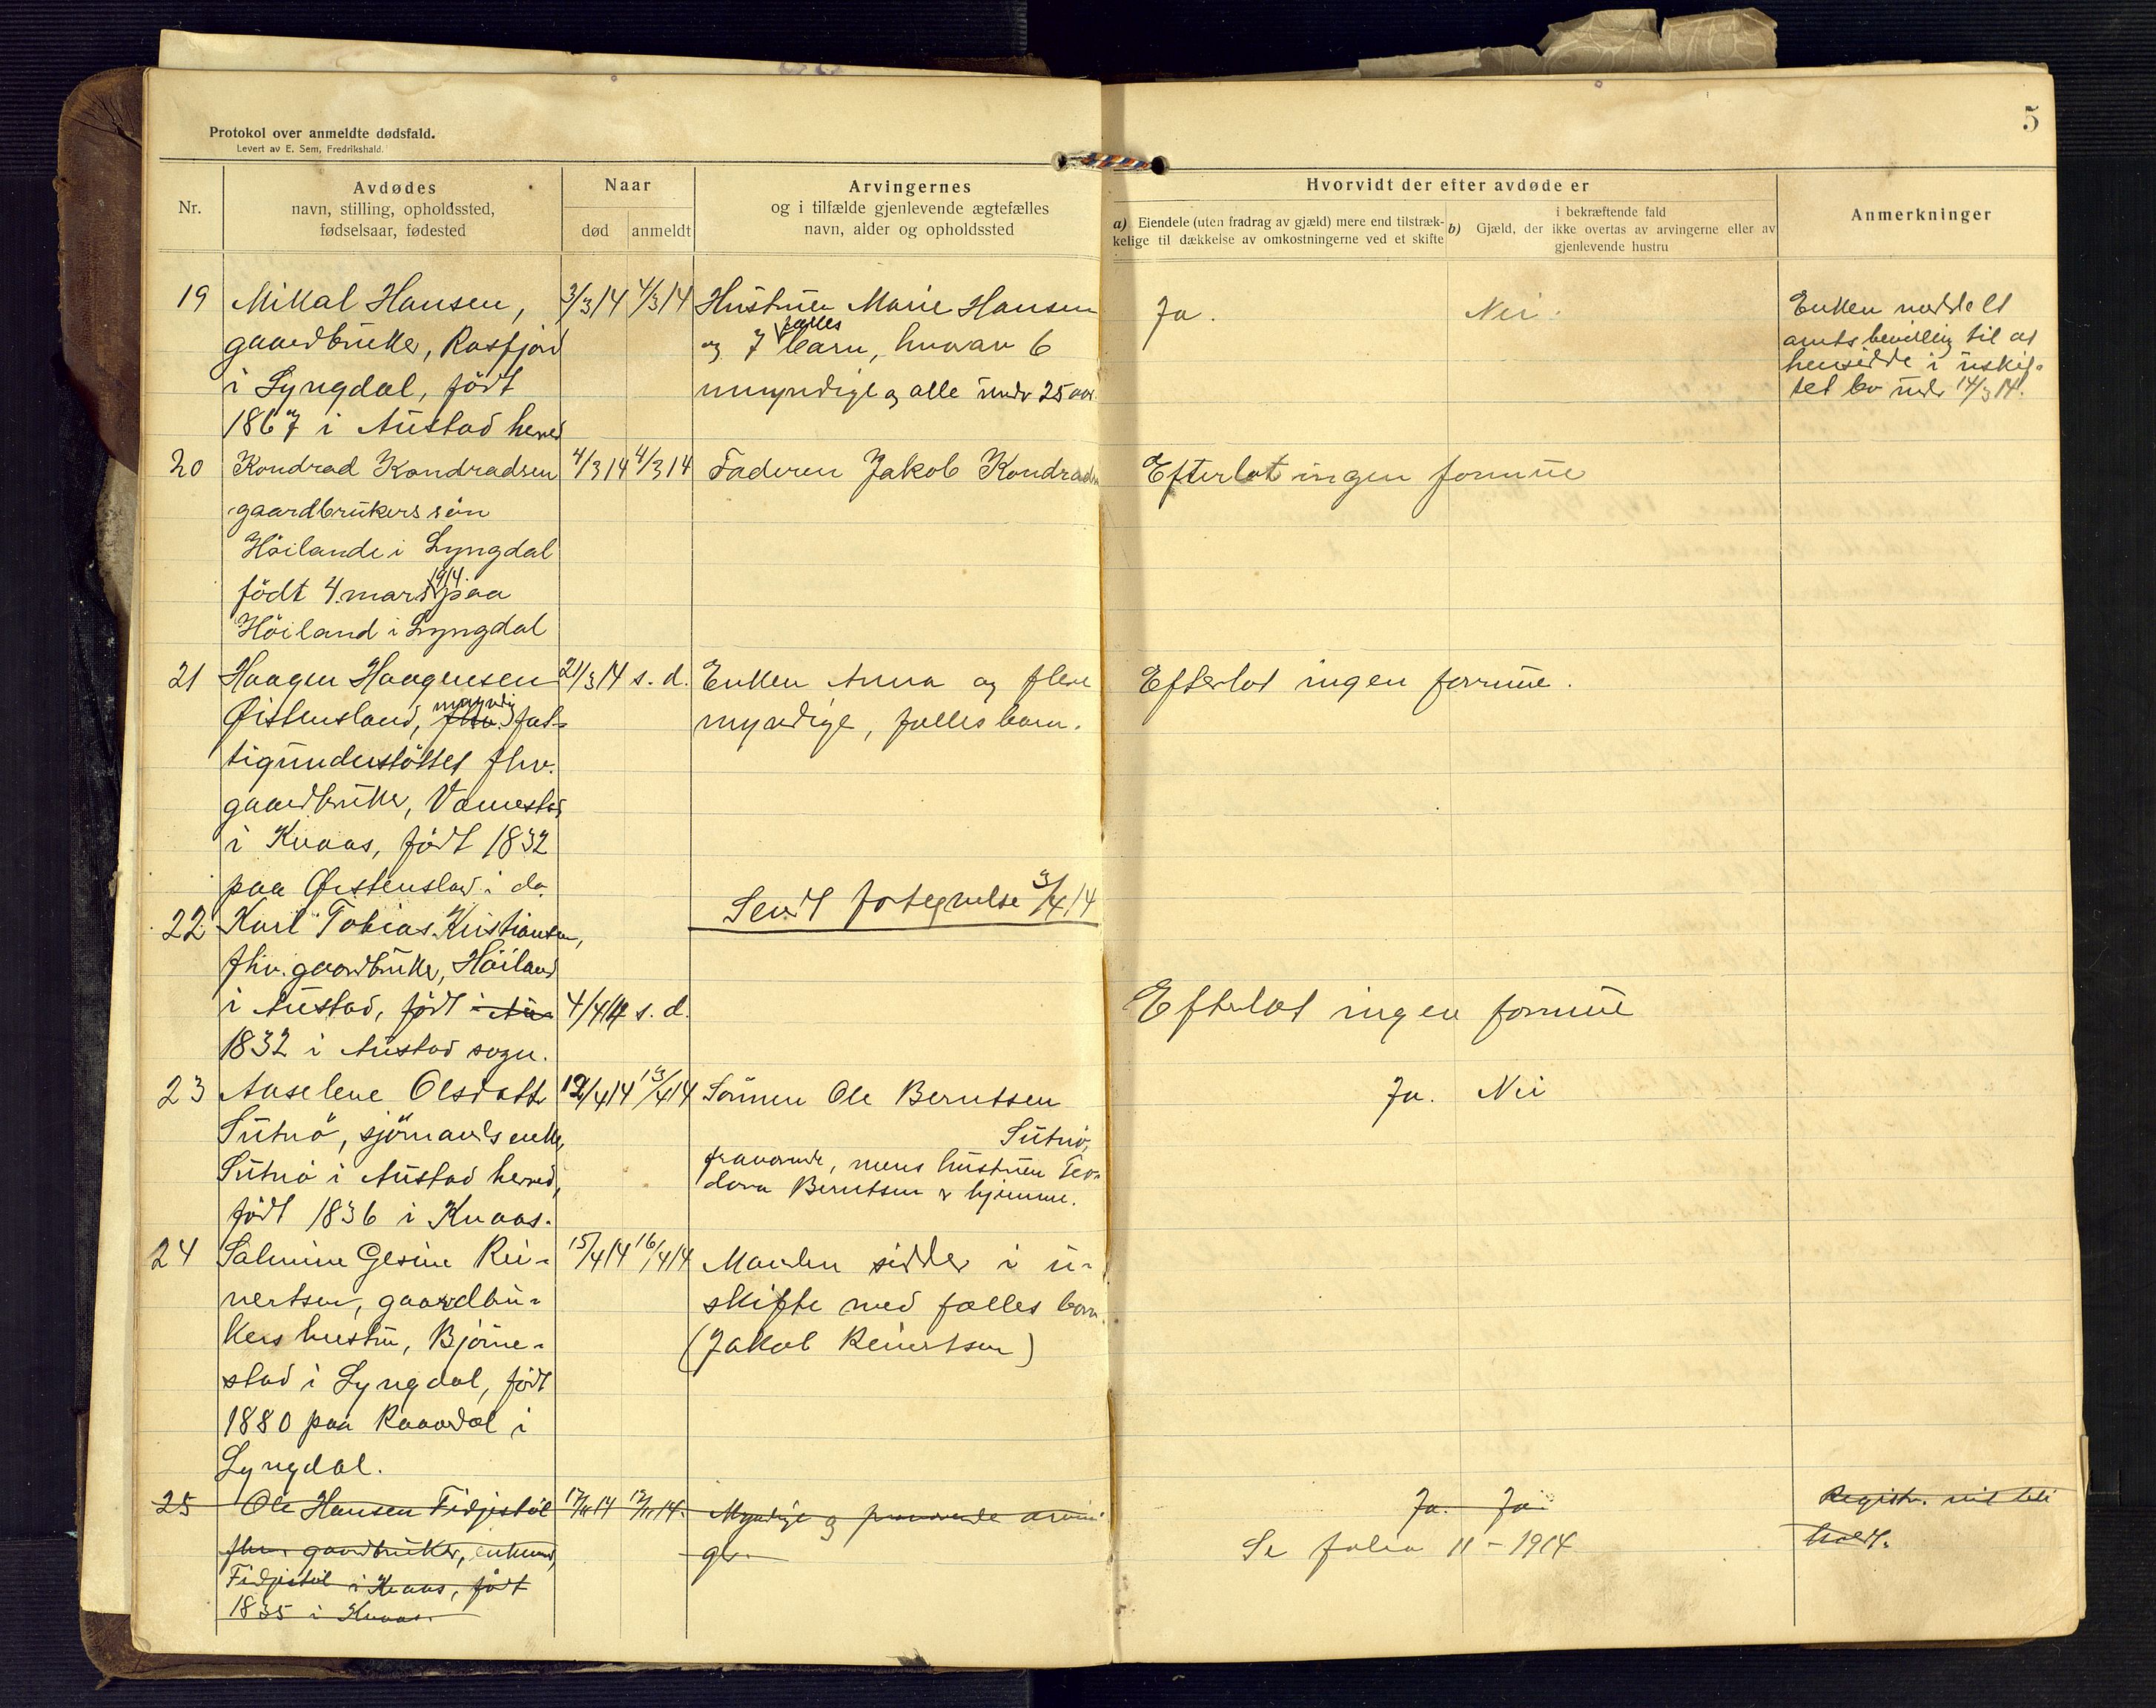 5
Protokol over anmeldte dødsfald.
Levert av E. Sem, Fredrikshald.
Nr.
Avdødes
navn, stilling, opholdssted,
fødselsaar, fødested
Naar
død
anmeldt
Arvingernes
og i tilfælde gjenlevende ægtefælles
navn, alder og opholdssted
Hvorvidt der efter avdøde er
a) Eiendele (uten fradrag av gjæld) mere end tilstræk-
kelige til dækkelse av omkostningerne ved et skifte
i bekræftende fald
b) Gjæld, der ikke overtas av arvingerne eller av
gjenlevende hustru
Anmerkninger
19 Mikal Hansen,
gaardbruker, Rosfjord
i Lyngdal, født
1867 i Austad herred
3/3 14 4/3 14
Hustruen Marie Hansen
og 7 fælles barn, hvorav 6
umyndige og alle under 25 aar.
Ja. Nei.
Enken meddelt
amtsbevilling til at
hensidde i uskif-
tet bo under 14/3 14.
20 Kondrad Kondradsen
gaardbrukers søn
Höilande i Lyngdal
födt 4. mars 1914 paa
Höiland i Lyngdal
4/3 14 4/3 14
Faderen Jakob Kondradsen
Efterlot ingen formue
21 Haagen Haagensen
Øistensland, fhv. myndig fat-
tigunderstöttet fhv.
gaardbruker, Vamestad
i Kvaas, født 1832
paa Øistensland i do.
21/3 14 s. d.
Enken Anna og flere
myndige, fælles barn.
Efterlot ingen formue.
Sendt fortegnelse 3/4 14
22 Karl Tobias Kristiansen,
fhv. gaardbruker, Höiland
i Austad, født i Au-
1832 i Austad sogn.
4/4 14 s. d.
Efterlot ingen formue
23 Anselene Olsdatter
Sütnö, sjömands enke,
Sütnö i Austad herred,
født 1836 i Kvaas.
12/4 14 13/4 14
Sönnen Ole Berntsen
Sütnö,
fraværende, mens hustruen Teo-
dora Berntsen er hjemme.
Ja. Nei
24 Salmine Gesine Rei-
nertsen, gaardbru-
kers hustru, Björne-
stad i Lyngdal, født
1880 paa Raaardal i
Lyngdal.
15/4 14 16/4 14
Manden sidder i u-
skifte med fælles barn.
(Jakob Reinertsen)
25 Ole Hansen Fidjestöl
fhv. gaardbruker, enkemand,
Fidjestöl i Kvaas, født
1835 i Kvaas.
Myndige og fraværende arvin-
ger.
Ja. Ja
Registr. vil bli
holdt.
Se folio 11 - 1914